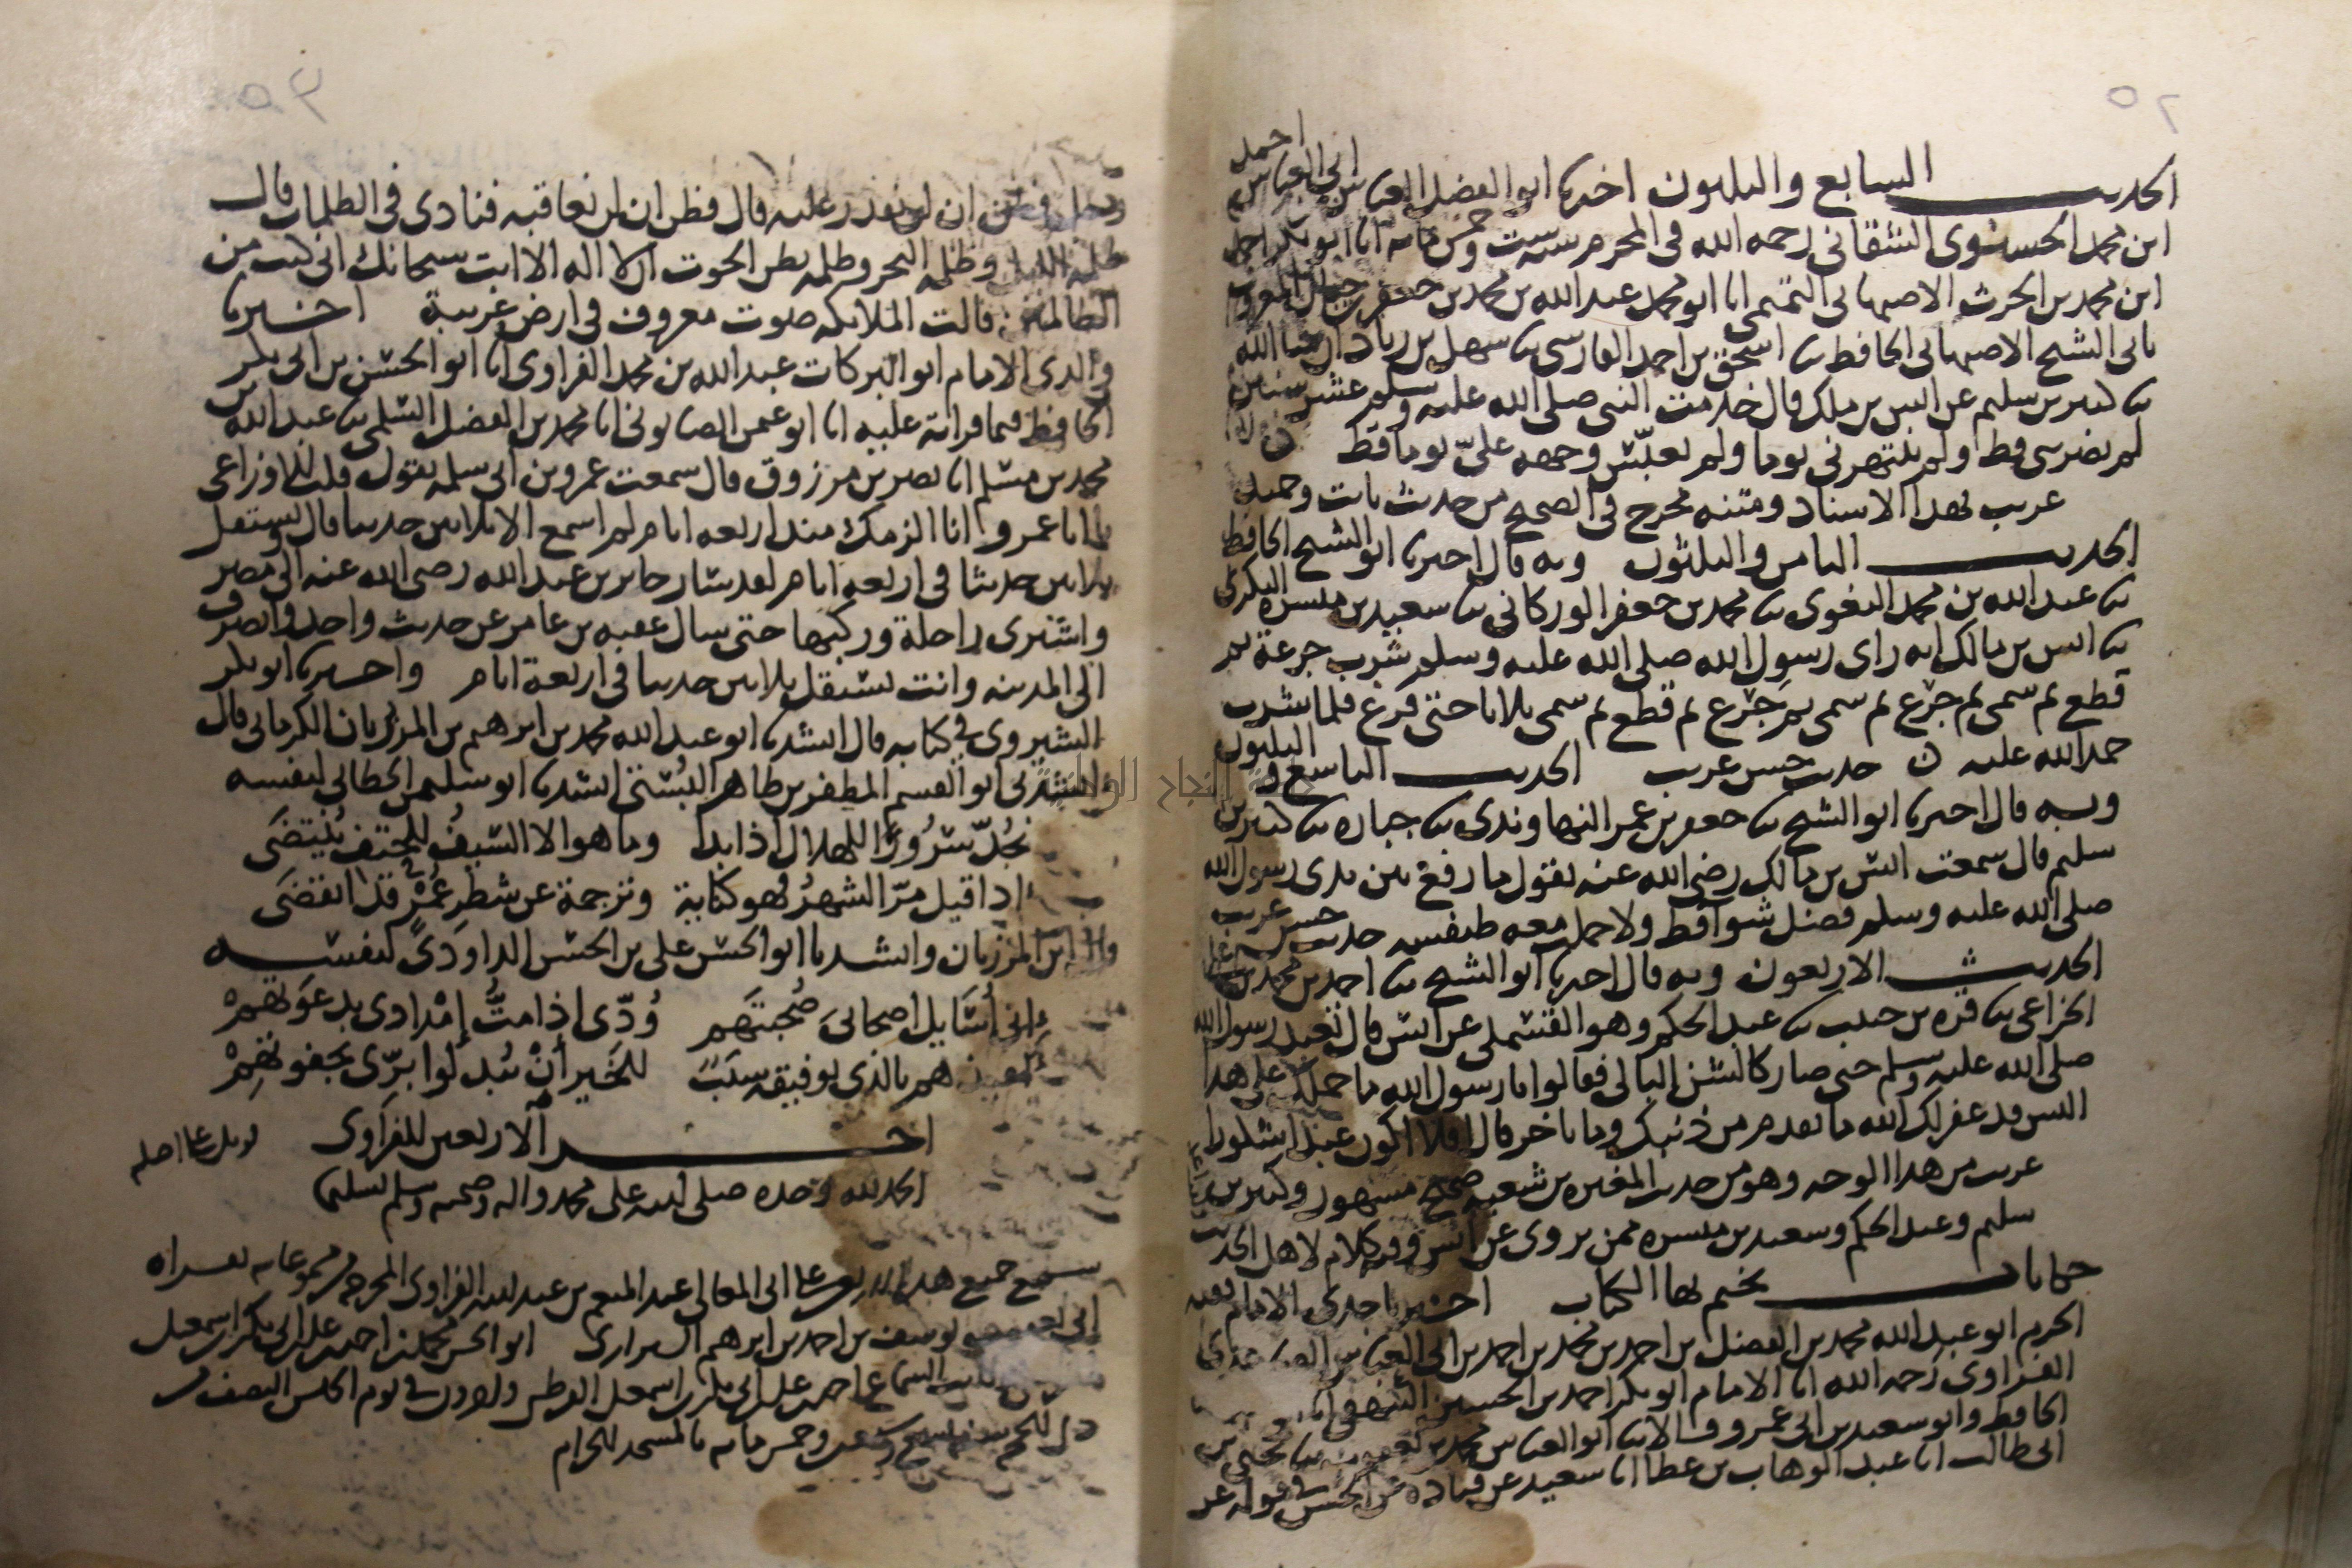 الحديث السابع والثلثون اخبرنا ابو الفضل العباس بن ابي العباس احمد
ابن محمد الحسنوى الشقاني رحمه الله في المحرم سنة ست وخمس مائة انا ابو بكر احمد
ابن محمد بن الحرث الاصبهاني التميمي انا ابو محمد عبد الله بن محمد بن جعفر بن حيان المعروف
بابي الشيخ الاصبهاني الحافظ ثنا اسحق بن احمد الفارسي ثنا سهل بن زياد ثنا عبد الله
ثنا كثير بن سليم عن انس بن ملك قال خدمت النبي صلى الله عليه وسلم عشر سنين
لم يضربني قط ولم ينتهرني يوما ولم يعبّس وجهه عليّ يوما قط ن
غريب بهذا الاسناد ومتنه مخرج في الصحيح من حديث ثابت وحميد
الحديث الثامن والثلثون وبه قال اخبرنا ابو الشيخ الحافظ
ثنا عبد الله بن محمد البغوي ثنا محمد بن جعفر الوركاني ثنا سعيد بن ميسره البكري
ثنا انس بن مالك انه راى رسول الله صلى الله عليه وسلم شرب جرعة ثم
قطع ثم سمى ثم جرّع ثم سمى ثم جرّع ثم قطع ثم سمى ثلاثا حتى فرغ فلما شرب
حمد الله عليه ن حديث حسن غريب الحديث التاسع والثلثون
وبه قال اخبرنا ابو الشيخ ثنا جعفر بن عمر النهاوندي ثنا جباره ثنا كثير بن
سليم قال سمعت انس بن مالك رضي الله عنه يقول ما رفع بين يدي رسول الله
صلى الله عليه وسلم فضل شوا قط ولا حمل معه طنفسه حديث حسن غريب
الحديث الاربعون وبه قال اخبرنا ابو الشيخ ثنا احمد بن محمد بن علي
الخزاعي ثنا قره بن حبيب ثنا عبد الحكم وهو القسملي عن انس قال تعبد رسول الله
صلى الله عليه وسلم حتى صار كالشن البالي فقالوا يا رسول الله ما حملك على هذا
اليس قد غفر لك الله ما تقدم من ذنبك وما تاخر قال افلا اكون عبدا شكورا
غريب من هذا الوجه وهو من حديث المغيره بن شعبه صحيح مشهور وكثير بن
سليم وعبد الحكم وسعيد بن ميسره ممن يروى عن انس وفيهم كلام لاهل الحديث
حكايات نختم بها الكتاب اخبرنا جدي الامام فقيه
الحرم ابو عبد الله محمد بن الفضل بن احمد بن محمد بن احمد بن ابي العباس الصاعدي
الفراوي رحمه الله انا الامام ابو بكر احمد بن الحسين البيهقي
الحافظ وابو سعيد بن ابي عمرو قالا ثنا ابو العباس محمد بن يعقوب ثنا يحيى بن
ابي طالب انا عبد الوهاب بن عطا انا سعيد عن قتاده عن الحسن في قوله عز
وجل فظن ان لن نقدر عليه قال فظن ان لن نعاقبه فنادى في الظلمات قال
ظلمة الليل وظلمه البحر وظلمه بطن الحوت ان لا اله الا انت سبحانك اني كنت من
الظالمين قالت الملائكه صوت معروف في ارض غريبة اخبرنا
والدي الامام ابو البركات عبد الله بن محمد الفراوي انا ابو الحسن بن ابي بكر
الحافظ فيما قراته عليه انا ابو عمر الصابوني انا محمد بن الفضل السلمي ثنا عبد الله بن
محمد بن مسلم انا نصر بن مرزوق قال سمعت عمرو بن ابي سلمه يقول قلت للاوزاعي
يا ابا عمرو انا الزمك منذ اربعه ايام لم اسمع الا ثلاثين حديثا قال وتستقل
ثلاثين حديثا في اربعه ايام لقد سار جابر بن عبد الله رضي الله عنه الى مصر
واشترى راحلة وركبها حتى سال عقبه بن عامر عن حديث واحد وانصرف
الى المدينه وانت تستقل ثلاثين حديثا في اربعة ايام واخبرنا ابو بكر
الشيروي في كتابه قال انشدنا ابو عبد الله محمد بن ابرهيم بن المرزبان الكرماني قال
انشدني ابو القسم المظفر بن طاهر البُستي انشدنا ابو سليمن الخطابي لنفسه
نُجدّ سُرُورًا للهلال اذا بدا وما هو الا السَيفُ للحتف يُنتضَى
اذا قيل مرّ الشهرُ فهو كنايةٌ وترجمة عن شطرِ عُمْرٍ قد انقضَى
قال ابن المرزبان وانشدنا ابو الحسن علي بن الحسن الداودي لنفسه
اني اُسَايل اصحابيَ صُحبتَهم وُدّى اذا متُّ إمْدادى بدعوتهِمْ
هم بالذي توفيقه سبَبٌ للخَير أنْ بُدلوا برّى بجفوتهِمْ
اخر الاربعين للفراوي قوبل على اصله
الحمد لله وحده صلى الله على محمد واله وصحبه وسلم تسليما
سمع جميع هذه الاربعين على ابي المعالي عبد المنعم بن عبد الله الفراوي المخرجة من مسموعاته بقراه
ابي يعقوب يوسف بن احمد بن ابرهيم الشيرازي ابو الحسن محمد بن احمد بن علي بن ابي بكر بن اسمعيل
السماع احمد بن علي بن ابي بكر بن اسمعيل القرطبي في يوم النصف من
ذي الحجة سنة وخمس مائه بالمسجد الحرام